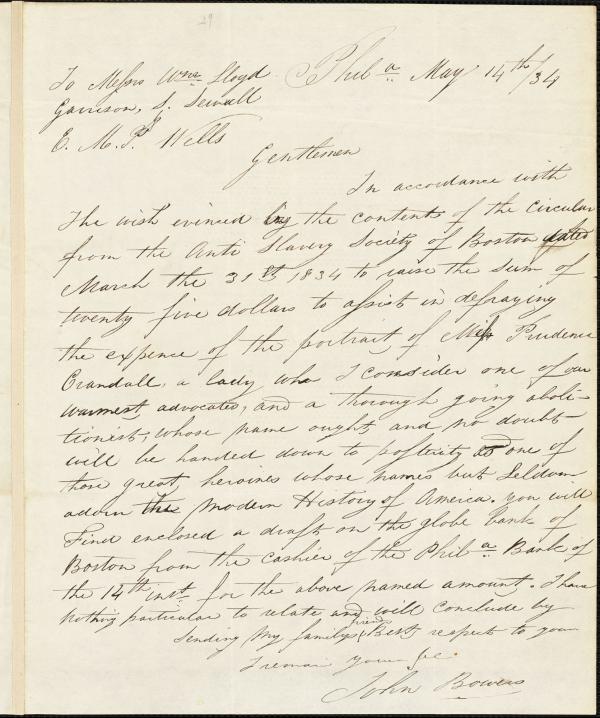 29
To Messrs Wm Lloyd
Phila May 14th/34
Garrison, S. Sewall
&
E. M. P. Wells
Gentlemen
In accordance with
The wish evinced by the contents of the Circular
from the Anti Slavery Society of Boston dated
March the 31st 1834 to raise the sum of
twenty five dollars to assist in defraying
the expence of the portrait of Miss Prudence
Crandall, a lady who I consider one of our
warmest advocates, and a thorough going aboli-
tionist, whose name ought and no doubt
will be handed down to posterity as one of
those great heroines whose names but Seldom
adorn the Modern History of America. you will
Find enclosed a draft on the globe bank of
Boston from the cashier of the Phila Bank of
the 14th inst for the above named amount. I have
nothing particular to relate and will conclude by
Sending my family & friends Best respect to you
I remain yours &c
John Bowers